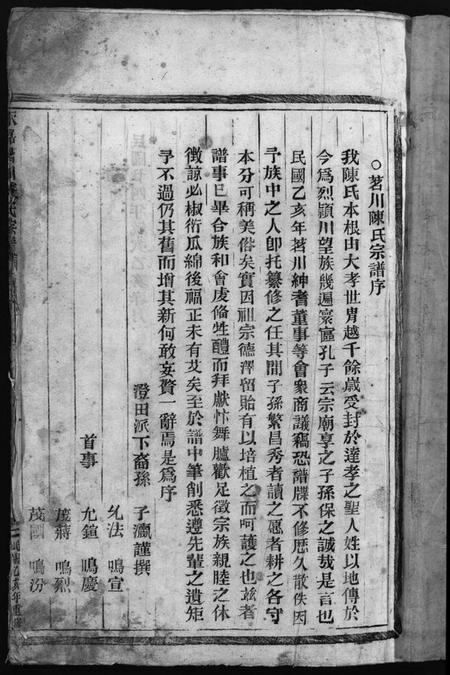 ○茗川陳氏宗譜序
我陳氏本根由大孝世胄越千餘歲受封於達孝之聖人姓以地傳於
今爲烈潁川望族幾遍寰區孔子云宗廟享之子孫保之誠哉是言也
民國乙亥年茗川紳耆董事等會衆商議竊恐譜牒不修歷久散佚因
予族中之人卽托纂修之任其間子孫繁昌秀者讀之愿者耕之各守
本分可稱美俗矣實因祖宗德澤留貽有以培植之而呵護之也茲者
譜事已畢合族和會虔俻牲醴而拜獻忭舞臚歡足徵宗族親睦之休
徵諒必椒衍瓜綿後福正未有艾矣至於譜中筆削悉遵先輩之遺矩
予不過仍其舊而增其新何敢妄贅一辭焉是爲序
澄田派下裔孫 子灝謹撰
法 鳴宣
首事 允鍹 鳴慶
蔣 鳴烈
茂 鳴汾